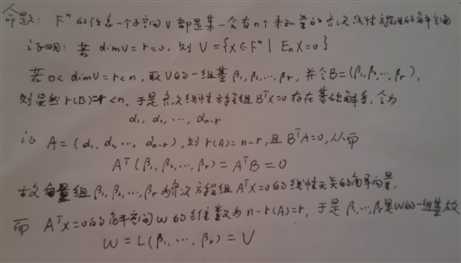 命题: Fⁿ 的任意一个子空间 V 都是某一含有 n 个未知量的齐次线性方程组的解空间
证明: 若 dimV = r = 0, 则 V = {X∈Fⁿ | EₙX=0}
若 0 < dimV = r < n, 取 V 的一组基 β₁, β₂, …, βᵣ, 并令 B=(β₁, β₂, …, βᵣ),
则显然 r(B)=r<n, 于是齐次线性方程组 BᵀX=0 存在基础解系, 令为
α₁, α₂, …, αₙ₋ᵣ
记 A = (α₁, α₂, …, αₙ₋ᵣ), 则 r(A)=n-r, 且 BᵀA=0, 从而
Aᵀ(β₁, β₂, …, βᵣ) = AᵀB = 0
故向量组 β₁, β₂, …, βᵣ 为齐次方程组 AᵀX=0 的线性无关的解向量,
而 AᵀX=0 的解空间 W 的维数为 n-r(A)=r, 于是 β₁, …, βᵣ 是 W 的一组基, 故
W = L(β₁, …, βᵣ) = V